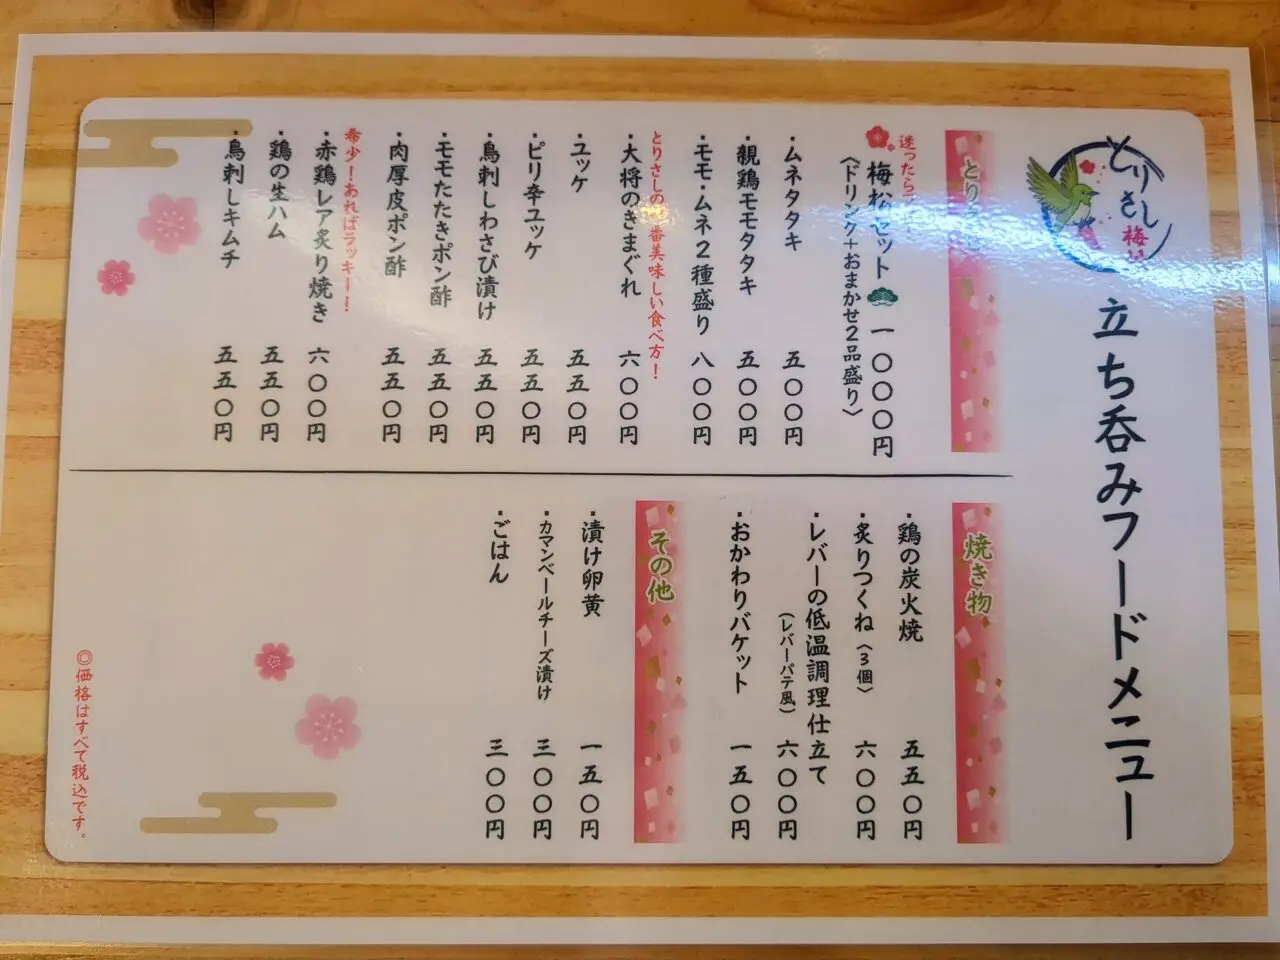 とりさし
梅
立ち呑みフードメニュー
とり
迷ったら
梅松セット 一〇〇〇円
〈ドリンク+おまかせ2品盛り〉
・ムネタタキ 五〇〇円
・親鶏モモタタキ 五〇〇円
・モモ・ムネ2種盛り 八〇〇円
とりさしの一番美味しい食べ方!
・大将のきまぐれ 六〇〇円
・ユッケ 五五〇円
・ピリ辛ユッケ 五五〇円
・鳥刺しわさび漬け 五五〇円
・モモたたきポン酢 五五〇円
・肉厚皮ポン酢 五五〇円
希少!あればラッキー!
・赤鶏レア炙り焼き 六〇〇円
・鶏の生ハム 五五〇円
・鳥刺しキムチ 五五〇円
焼き物
・鶏の炭火焼 五五〇円
・炙りつくね〈3個〉 六〇〇円
・レバーの低温調理仕立て
(レバーパテ風) 六〇〇円
・おかわりバケット 一五〇円
その他
・漬け卵黄 一五〇円
・カマンベールチーズ漬け 三〇〇円
・ごはん 三〇〇円
◎価格はすべて税込です。